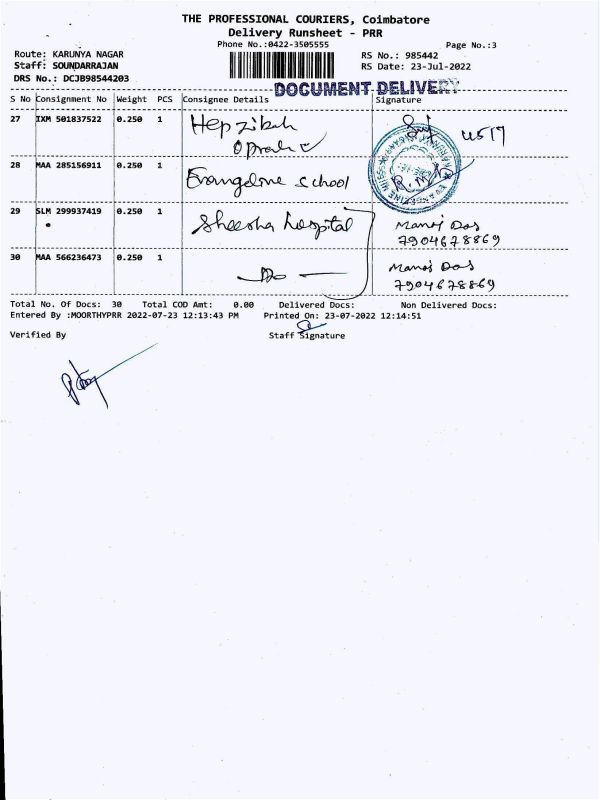 THE PROFESSIONAL COURIERS, Coimbatore
Delivery Runsheet - PRR
Phone No.:0422-3505555 Page No.:3
Route: KARUNYA NAGAR RS No.: 985442
Staff: SOUNDARRAJAN RS Date: 23-Jul-2022
DRS No.: DCJB98544203
DOCUMENT DELIVERY
S No Consignment No Weight PCS Consignee Details Signature
27 IXM 501837522 0.250 1 Hepzibah
28 MAA 285156911 0.250 1 Evangeline school
29 SLM 299937419 0.250 1 Sheesha hospital Manoj Das
7904678869
30 MAA 566236473 0.250 1 Do Manoj Das
7904678869
Total No. Of Docs: 30 Total COD Amt: 0.00 Delivered Docs: Non Delivered Docs:
Entered By :MOORTHYPRR 2022-07-23 12:13:43 PM Printed On: 23-07-2022 12:14:51
Verified By Staff Signature